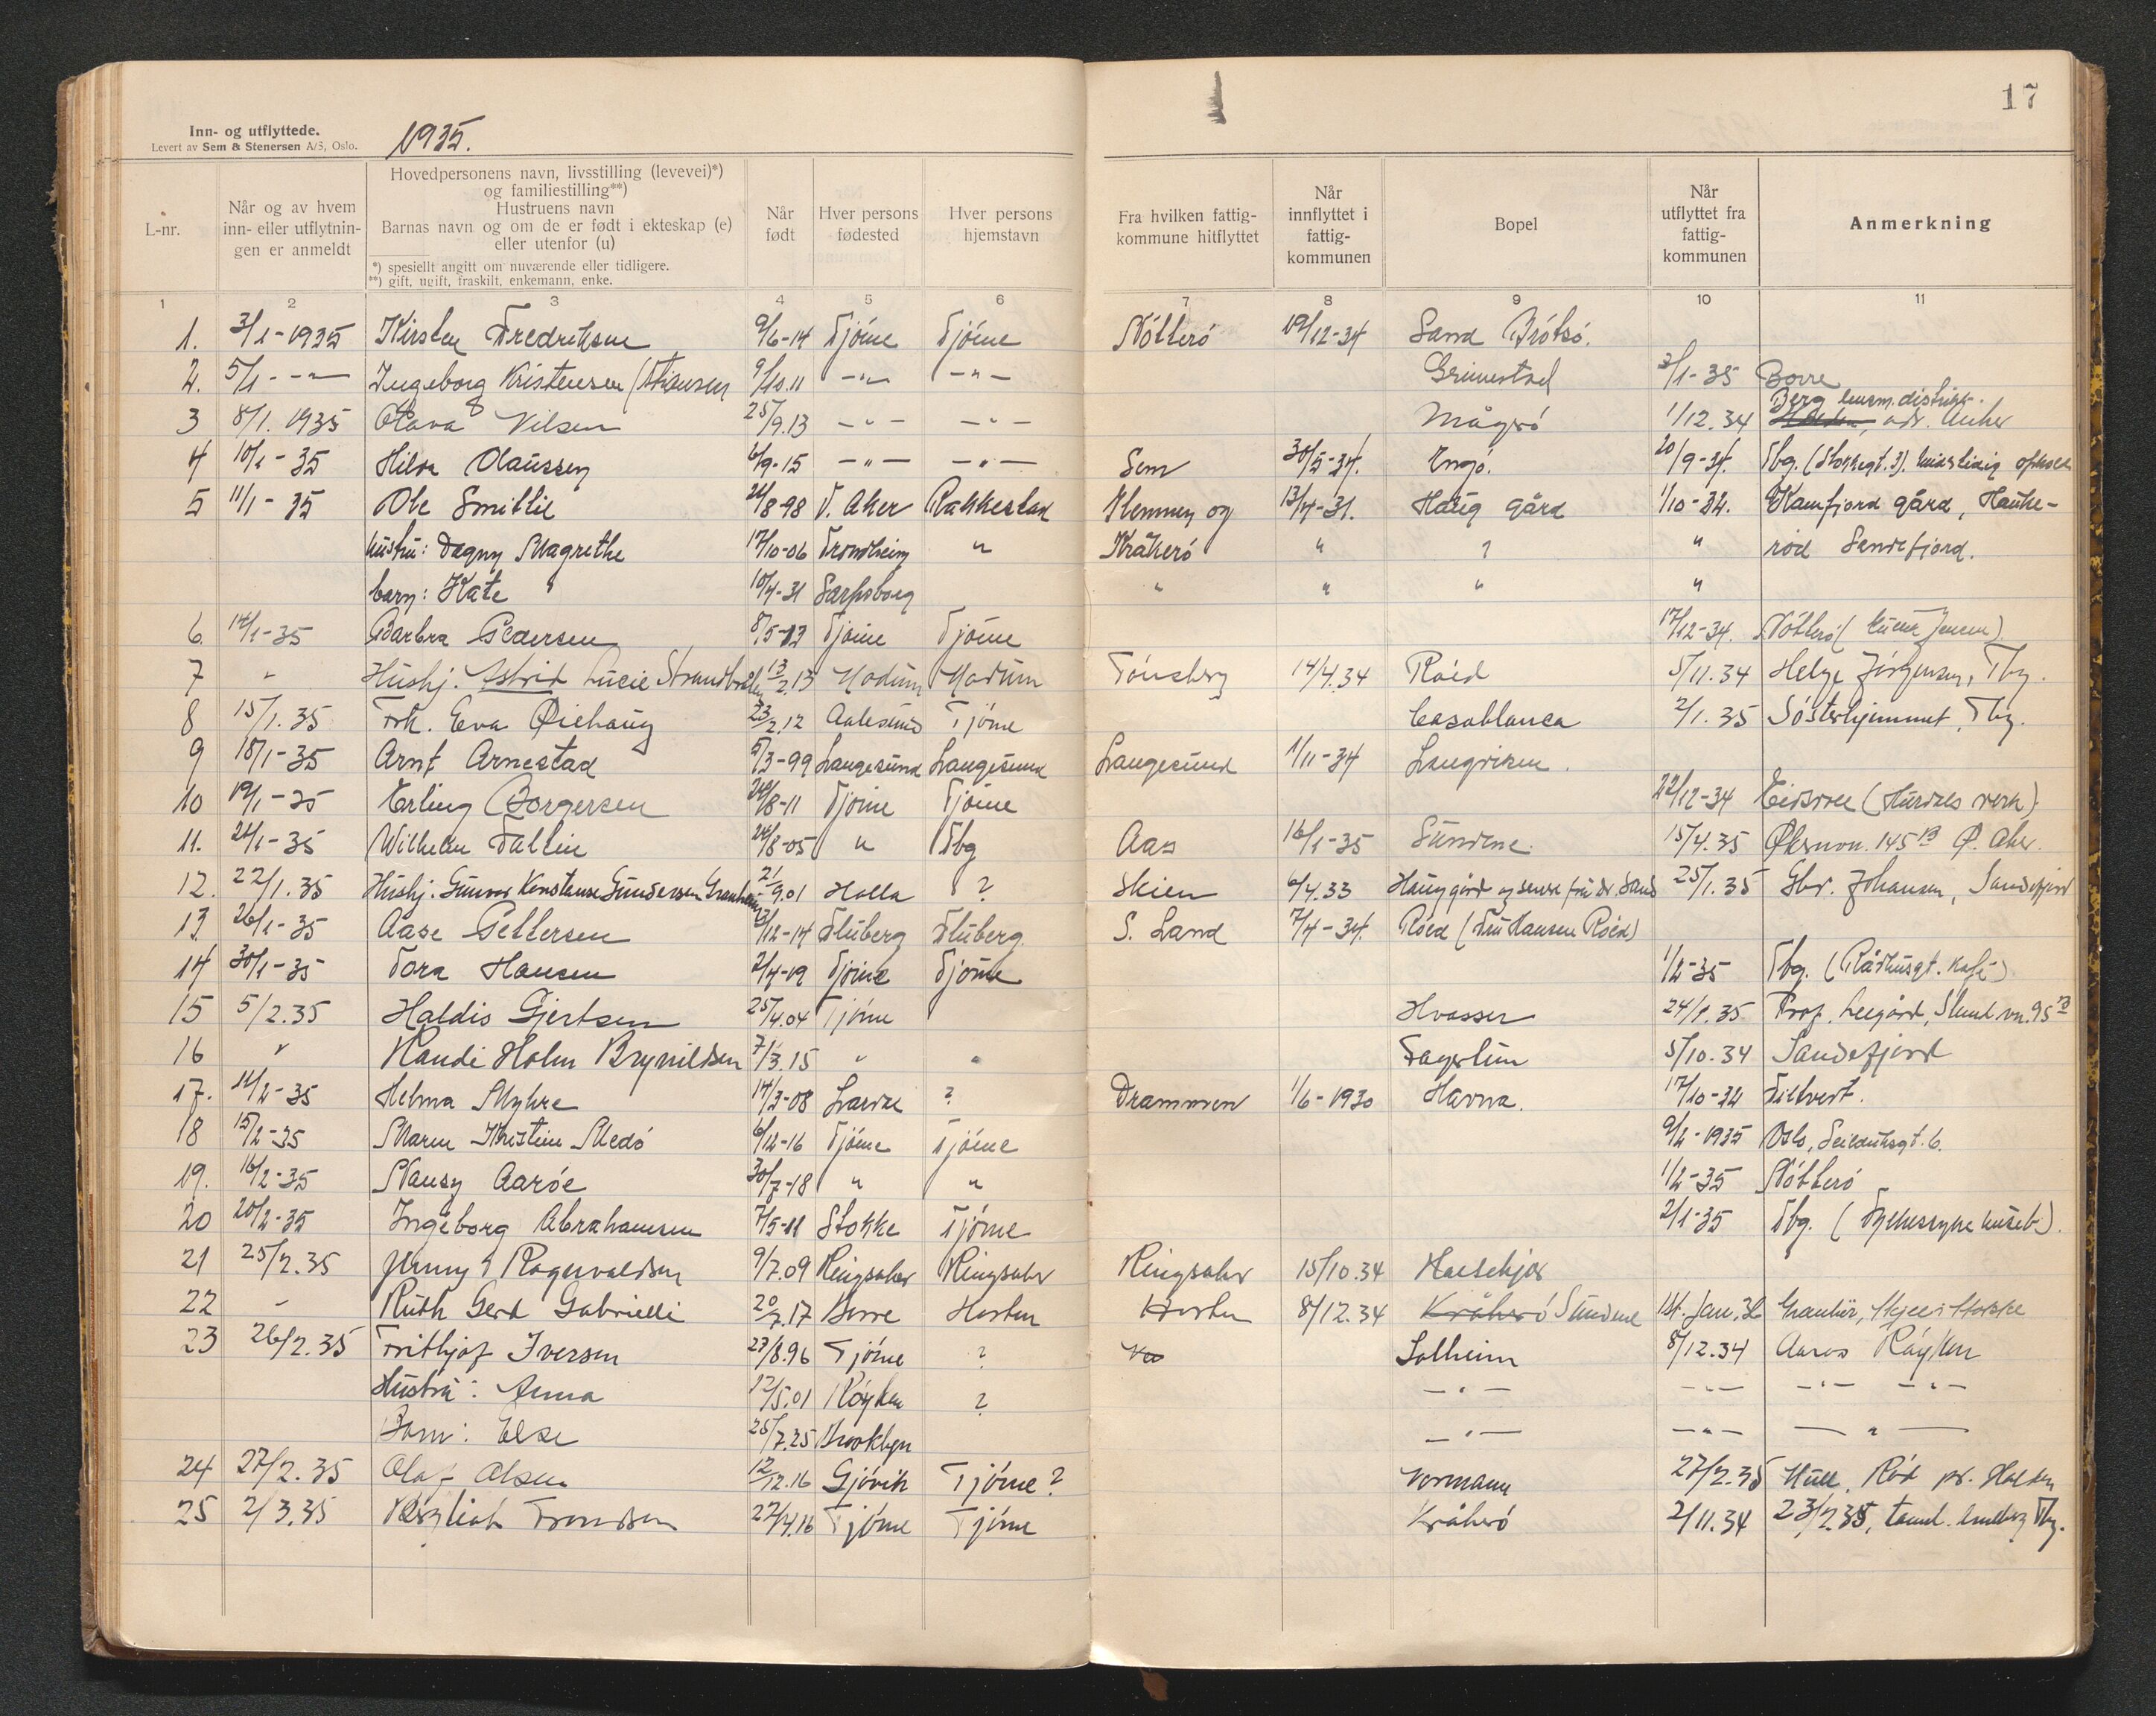 17
Inn- og utflyttede.
Levert av Sem & Stenersen A/S, Oslo.
1935.
L-nr.
Når og av hvem inn- eller utflytnin- gen er anmeldt
Hovedpersonens navn, livsstilling (levevei)*) og familiestilling**) Hustruens navn Barnas navn og om de er født i ekteskap (e) eller utenfor (u)
*) spesiellt angitt om nuværende eller tidligere.
**) gift, ugift, fraskilt, enkemann, enke.
Når født
Hver persons fødested
Hver persons hjemstavn
Fra hvilken fattig- kommune hitflyttet
Når innflyttet i fattig- kommunen
Bopel
Når utflyttet fra fattig- kommunen
Anmerkning
1 2 3 4 5 6 7 8 9 10 11
1. 3/1-1935 Kirsten Fredriksen 9/6-14 Tjöme Tjöme Nötterö 19/12-34 Sand Brötsö.
2. 5/1 - " - Ingeborg Kristensen 9/10.11 - " - - " - Grimestad 3/1-35 Borre
Berg lensm.distrikt.
3 8/1. 1935 Olava Nilsen 25/9.13 - " - - " - Mågerö 1/12.34 adr. Anker
4 10/1-35 Hilda Olaussen 6/9-15 - " - - " - Sem 30/5-34. Engö. 20/9-34. Tbg. (Storgt. 3). midlertidig ophold
5 11/1-35 Ole Smittil 21/8-98 V. Aker Rakkestad Klemmen og 13/4-31. Haug gård 1/10-34. Kamfjord gård, Hauke-
hustru: Dagny Magrethe 17/10-06 Trondheim " Kråkerö " ? " röd Sandefjord.
barn: Kate " 10/4-31 Sarpsborg " " " "
6. 14/1-35 Barbra Pedersen 8/5-13 Tjöme Tjöme 17/12-34. Nötterö
7 " Hushj. Astrid Lucie 13/2.13 Modum Modum Tönsberg 14/4.34 Röed 5/11.34 Helge Jörgensen, Tbg.
8 15/1.35 Frk. Eva Øiehaug 23/2.12 Aalesund Tjöme Casablanca 2/1.35 Søsterhjemmet, Tbg.
9 18/1-35 Arnt Arnestad 5/3-99 Langesund Langesund Langesund 1/11-34 Langviken.
10 19/1-35 Erling Borgersen 24/8-11 Tjöme Tjöme 22/12-34 Eidsvoll (Hurdals verk).
11. 21/1-35 Wilhelm Tallin 24/8-05 " Tbg Aas 16/1-35 Sundene. 15/4.35 Økernvn. 145 B Ø. Aker.
12. 22/1.35 Hushj. Gunvor Konstanse Gundersen Granheim 21/9.01 Holla ? Skien 6/4.33 Haug gård og senere fru dr. Sand 25/1.35 Gbr. Johansen, Sandefjord
13. 26/1-35 Aase Pettersen 13/12-14 Fluberg Fluberg. S. Land 7/4-34. Röed (Fru Hansen Röed)
14 30/1-35 Tora Hansen 2/4-19 Tjöme Tjöme 1/2-35 Tbg. (Rådhusgt. Kafé)
15 5/2.35 Haldis Gjertsen 25/4.04 Tjöme Hvasser 24/1.35 Prof.
16 " Randi Holm Brynildsen 7/3.15 " " Fagerlun 5/10.34 Sandefjord
17. 14/2-35 Helma Myhre 14/3-08 Larvik ? Drammen 1/6-1930 Havna. 17/10-34 Tiltvert.
18 15/2-35 Maren Kristine Medö 6/12-16 Tjöme Tjöme 9/2-1935 Oslo, Seilduksgt. 6.
19. 16/2-35 Nansy Aaröe 30/7-18 " " 1/2-35 Nötterö
20 20/2-35 Ingeborg Abrahamsen 7/5-11 Stokke Tjöme 2/1-35 Tbg. (Fylkessykehuset).
21 25/2.35 Jenny Ragnvaldsen 9/7.09 Ringsaker Ringsaker Ringsaker 15/10.34 Haltekjær
22 " Ruth Gerd Gabrielli 20/7.17 Borre Horten Horten 8/12.34 Kråkerö Sundene 1st. Jan. 36
23 26/2.35 Frithjof Iversen 23/8.96 Tjöme ? Solheim 8/12.34 Aaros Röyken
Hustru: Anna 12/5.01 Röyken ? - " - - " - - " - - " -
Barn: Else 25/7.25 Brooklyn - " - - " - - " -
24 27/2.35 Olaf Olsen 12/12.16 Gjövik Tjöme? Vormann 27/2.35 Hull. Röd pr. Halden
25 2/3.35 Trondsen 27/4.16 Tjöme Tjöme Kråkerö 2/11.34 23/2.35, tannl. Tbg.